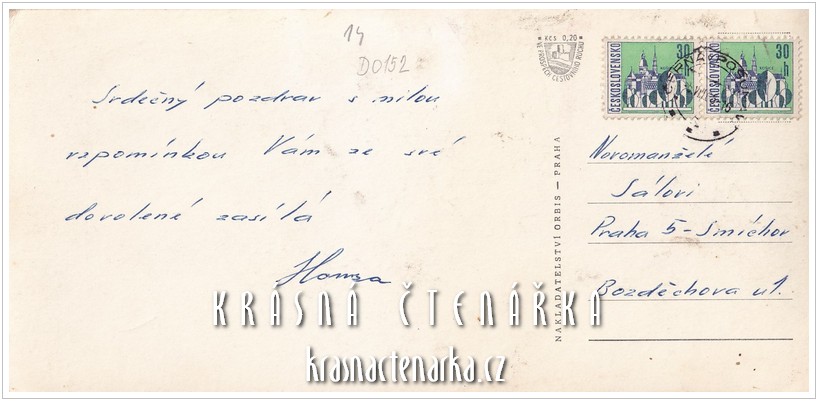 14
D0152
KČS 0,20
VE PROSPĚCH CESTOVNÍHO RUCHU
ČESKOSLOVENSKO
30 h
ČESKOSLOVENSKO
30 h
ČERNÁ POŠ
Srdečný pozdrav s milou
vzpomínkou Vám ze své
dovolené zasílá
Honza
NAKLADATELSTVÍ ORBIS — PRAHA
Novomanželé
Sálovi
Praha 5 - Smíchov
Bozděchova ul.
KRÁSNÁ ČTENÁŘKA
krasnactenarka.cz